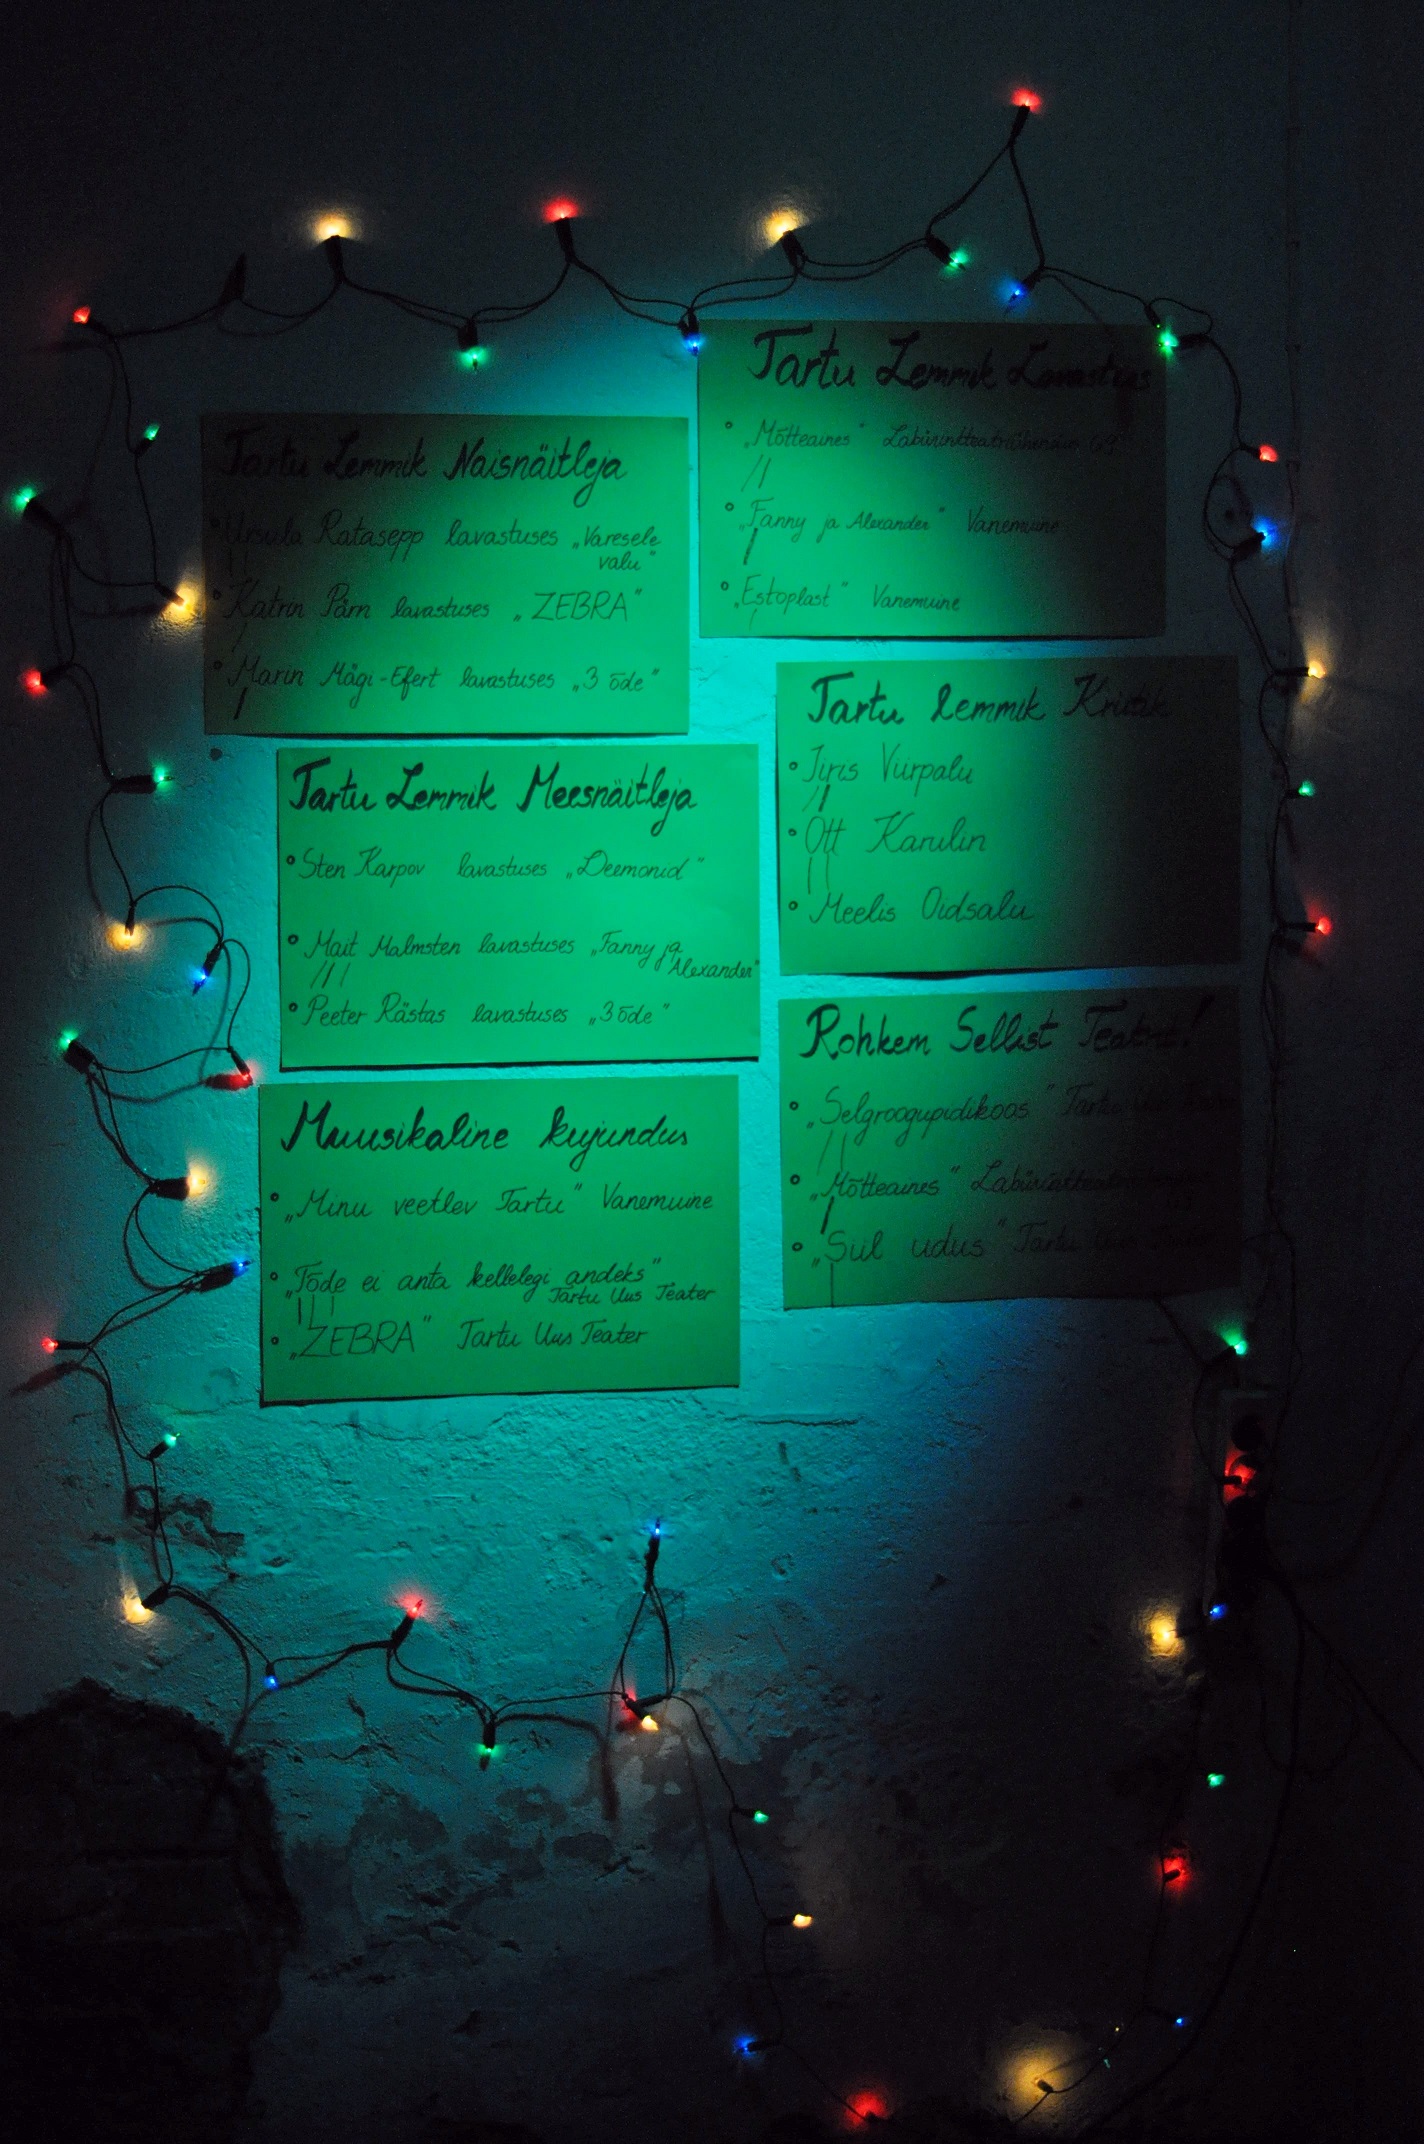 Tartu Lemmik Naisnäitleja
Ursula Ratasepp lavastuses „Varesele
valu"
Katrin Pärn lavastuses „ZEBRA"
Marin Mägi-Efert lavastuses „3 õde"
Tartu Lemmik Lavastus
„Mõtteaines" Labürintteatriühendus G9
„Fanny ja Alexander" Vanemuine
„Estoplast" Vanemuine
Tartu Lemmik Meesnäitleja
Sten Karpov lavastuses „Deemonid"
Mait Malmsten lavastuses „Fanny ja
Alexander"
Peeter Rästas lavastuses „3 õde"
Tartu lemmik Kriitik
Iiris Viirpalu
Ott Karulin
Meelis Oidsalu
Muusikaline kujundus
„Minu veetlev Tartu" Vanemuine
„Tõde ei anta kellelegi andeks"
Tartu Uus Teater
„ZEBRA" Tartu Uus Teater
Rohkem Sellist Teatrit!
„Selgroogupidikoos" Tartu Uus Teater
„Mõtteaines"
„Siil udus" Tartu Uus Teater